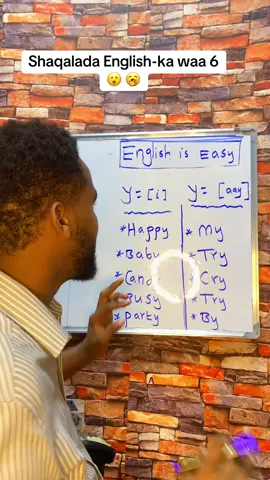 Shaqalada English-ka waa 6
😮 😪
English is Easy
y = [i]
y = [aay]
*Happy
* My
*Baby
* Try
* Cry
*Busy
* Try
* party
* By